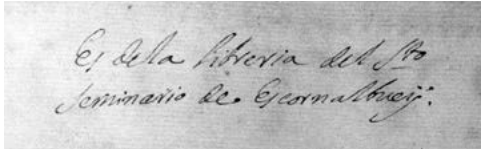 Es dela libreria del Sto
seminario de Escornalbueÿ.